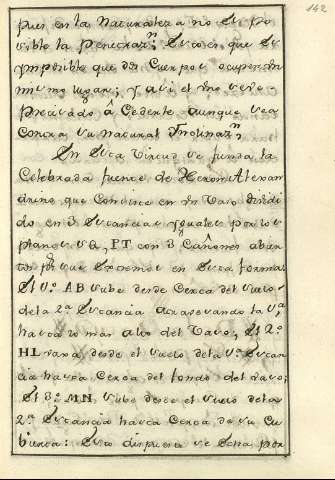 142
pues en la Naturaleza no es po
sible la Penetraz.n Esto es que es
ymposible que dos Cuerpos ocupen un
mismo lugar; y asi el uno es
precisado â Cedente aunque sea
Contra su natural Inclinaz.n
En esta Virtud se funda la
Celebrada fuente de Heron Alexan
drino que Consiste en un Vaso dividi
do en 3 estancias yguales por los
planos RQ, PT con 3 Cañones abier
tos por sus extremos en esta forma
El 1.º AB sube desde Cerca del suelo
de la 2.ª estancia atravesando la 1.ª
hasta lo mas alto del Vaso; El 2.º
HI vaxa desde el suelo de la 1.ª estan
cia hasta Cerca del fondo del Vaso;
El 3.º MN sube desde el suelo de la
2.ª estancia hasta Cerca de su Cu
bierta: Esto dispuesto se echa por